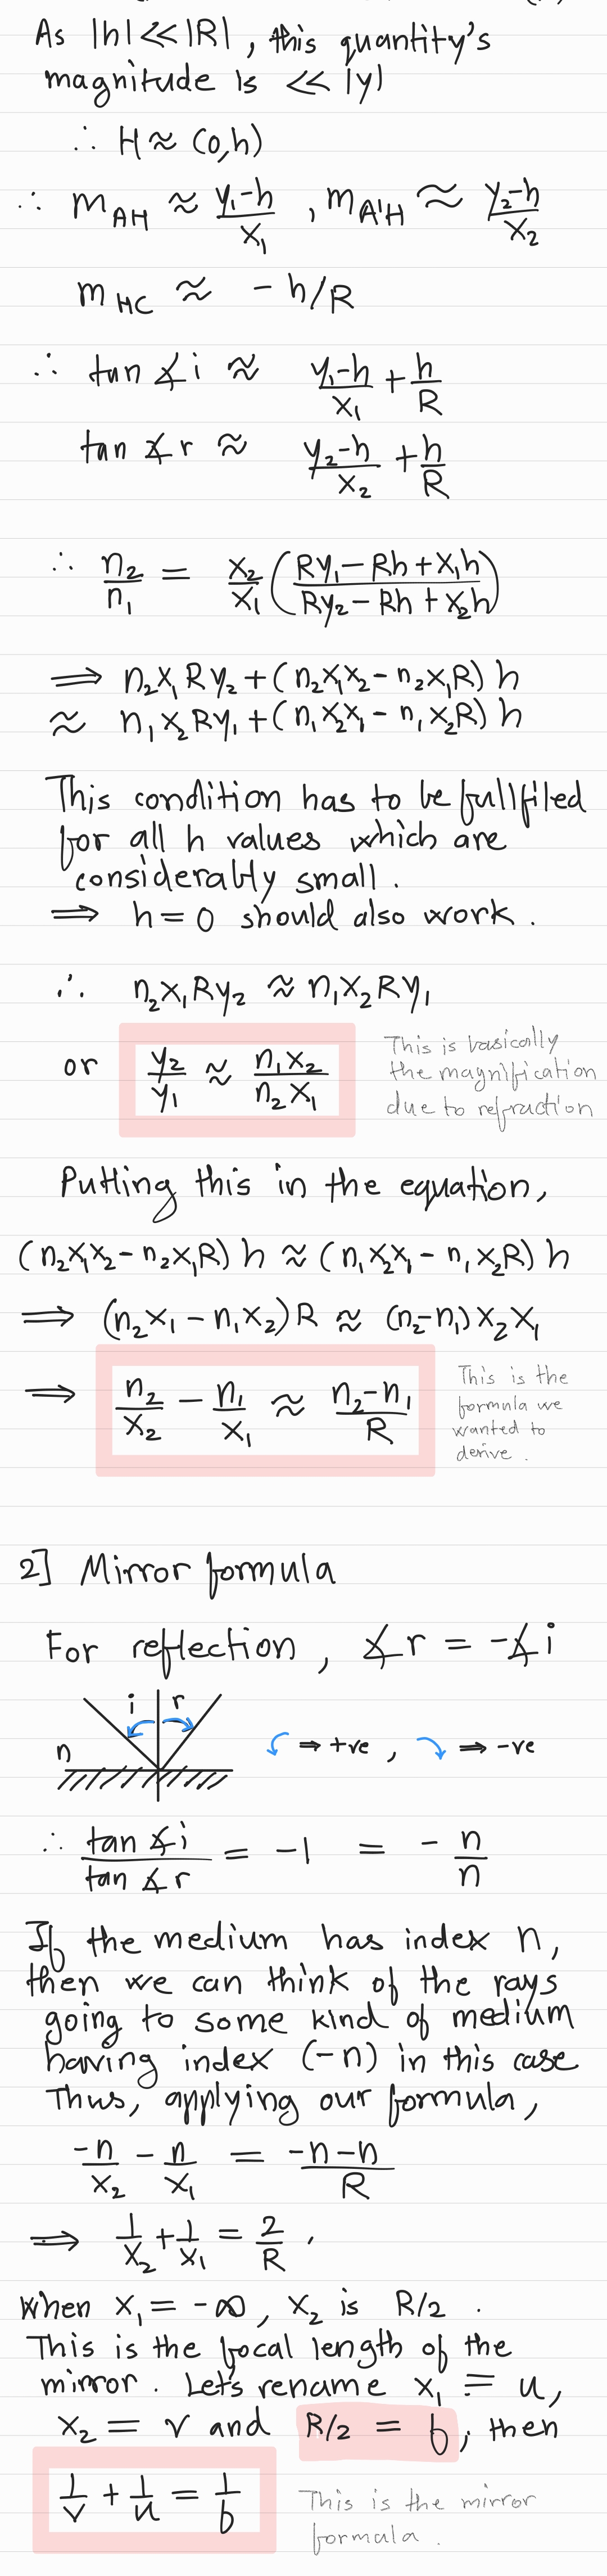 As |h| << |R|, this quantity's
magnitude is << |y|
∴ H ≈ (0,h)
∴ m_AH ≈ (y₁-h)/x₁ , m_A'H ≈ (y₂-h)/x₂
m_HC ≈ -h/R
∴ tan ∡i ≈ (y₁-h)/x₁ + h/R
tan ∡r ≈ (y₂-h)/x₂ + h/R
∴ n₂/n₁ = x₂/x₁ ((Ry₁ - Rh + x₁h)/(Ry₂ - Rh + x₂h))
⟹ n₂x₁Ry₂ + (n₂x₁x₂ - n₂x₁R) h
≈ n₁x₂Ry₁ + (n₁x₂x₁ - n₁x₂R) h
This condition has to be fullfiled
for all h values which are
considerably small.
⟹ h = 0 should also work.
∴ n₂x₁Ry₂ ≈ n₁x₂Ry₁
or y₂/y₁ ≈ n₁x₂/n₂x₁
This is basically
the magnification
due to refraction
Putting this in the equation,
(n₂x₁x₂ - n₂x₁R) h ≈ (n₁x₂x₁ - n₁x₂R) h
⟹ (n₂x₁ - n₁x₂) R ≈ (n₂-n₁) x₂x₁
⟹ n₂/x₂ - n₁/x₁ ≈ (n₂-n₁)/R
This is the
formula we
wanted to
derive.
2] Mirror formula
For reflection, ∡r = -∡i
i r
n
⇒ +ve , ⇒ -ve
∴ tan ∡i / tan ∡r = -1 = - n/n
If the medium has index n,
then we can think of the rays
going to some kind of medium
having index (-n) in this case
Thus, applying our formula,
-n/x₂ - n/x₁ = (-n-n)/R
⟹ 1/x₂ + 1/x₁ = 2/R .
When x₁ = -∞, x₂ is R/2 .
This is the focal length of the
mirror. Let's rename x₁ ≡ u,
x₂ ≡ v and R/2 ≡ f, then
1/v + 1/u = 1/f
This is the mirror
formula.